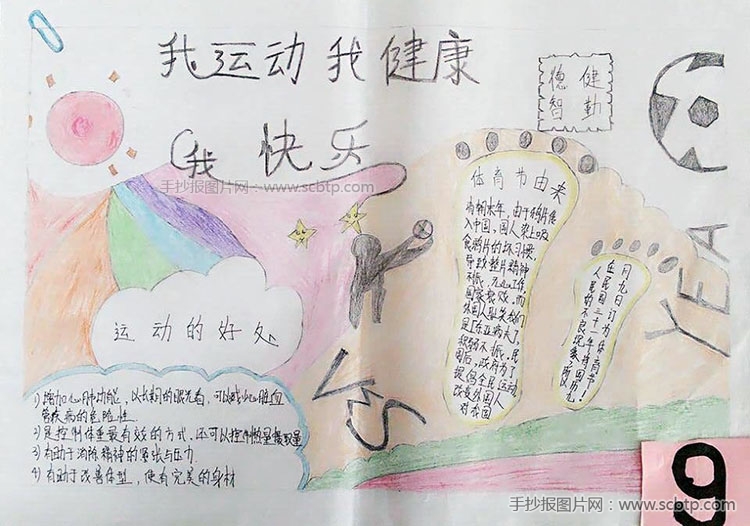 我运动我健康
我 快乐
德 健
智 勤
手抄报图片网:www.scbtp.com
体育节由来
清朝末年,由于鸦片侵
入中国,国人染上吸
食鸦片的坏习惯,
导致整片精神
不振,无心工作,
国家衰败,而
外国人取笑我们
是「东亚病夫」,
积弱不振。民
国后,政府为了
提倡全民运动,
改变外国人
对本国
人民的不良现象,所以
在民国三十一年将国历九
月九日订为体育节!
YEA
VS
运动的好处
1)增加心肺功能,以长期的眼光看,可以减少心脏血
管疾病的危险性
2)是控制体重最有效的方式,还可以控制热量摄取量
3)有助于消除精神的紧张与压力
4)有助于改善体型,使有完美的身材
9
手抄报图片网:www.scbtp.com